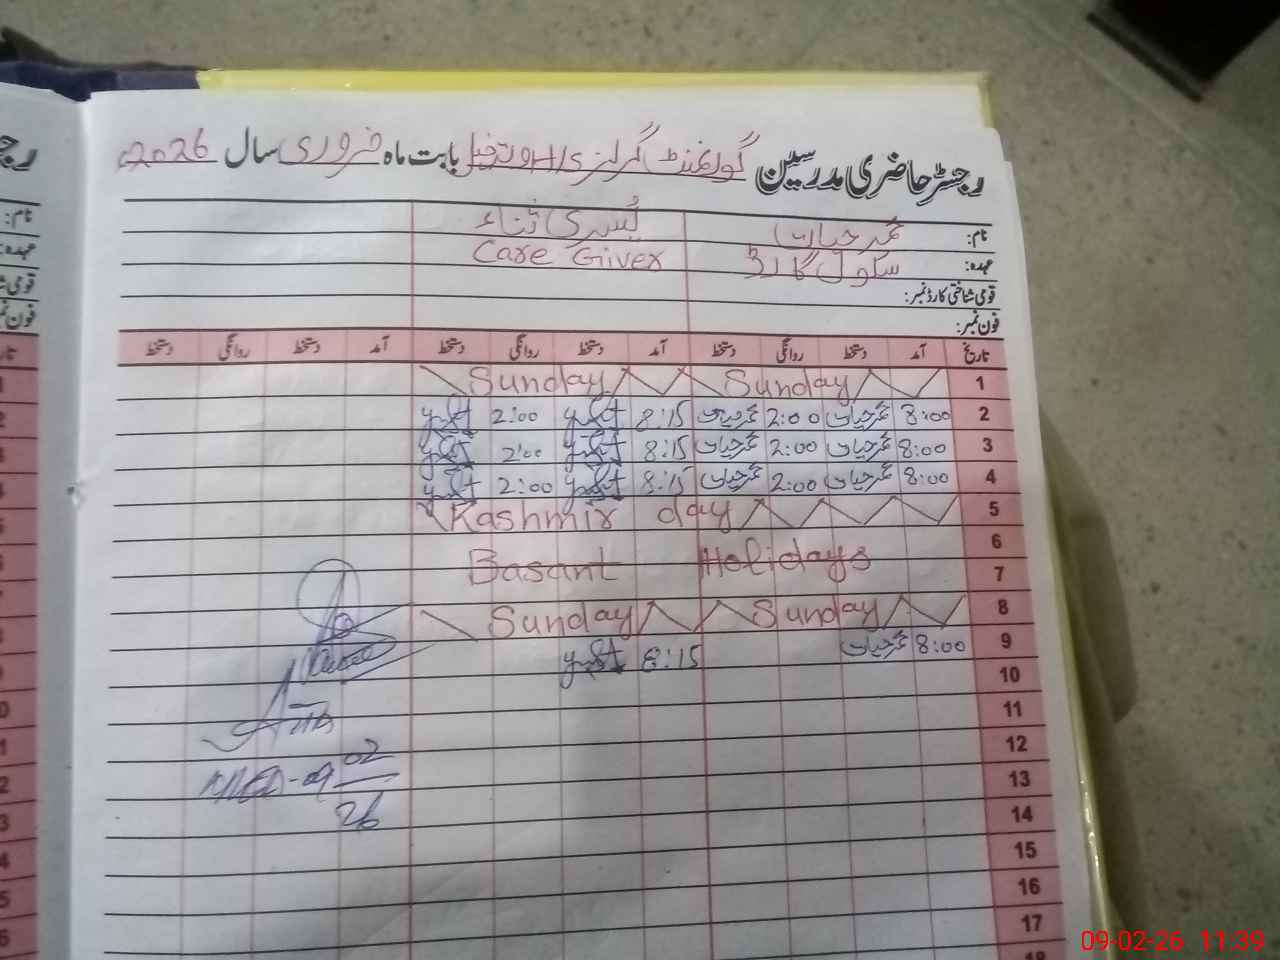 رجسٹر حاضری مدرسین گورنمنٹ گرلز H/S بابت ماہ فروری سال 2026
نام: عمر حیات یُسریٰ ثناء
عہدہ: سکول گارڈ Care Giver
قومی شناختی کارڈ نمبر:
فون نمبر:
تاریخ آمد دستخط روانگی دستخط آمد دستخط روانگی دستخط آمد دستخط روانگی دستخط
1 Sunday Sunday
2 8:00 عمر حیات 2:00 عمر حیات 8:15 2:00
3 8:00 عمر حیات 2:00 عمر حیات 8:15 2:00
4 8:00 عمر حیات 2:00 عمر حیات 8:15 2:00
5 Kashmir day
6
7 Basant Holidays
8 Sunday Sunday
9 8:00 عمر حیات 8:15
10
11
12
13
14
15
16
17
18
09-02-26 11:39